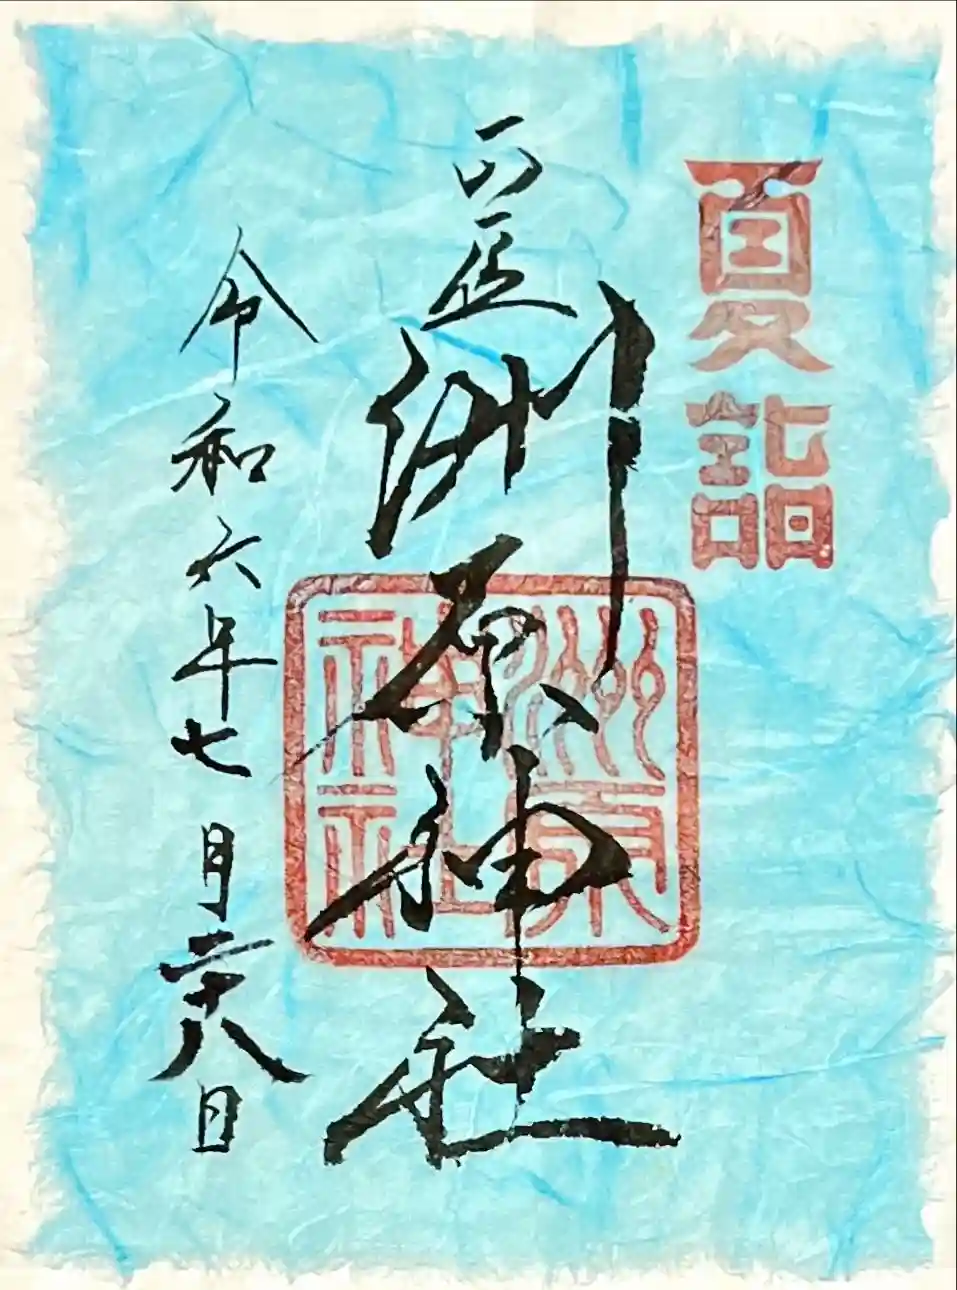 夏詣
洲原神社
洲原
神社
令和六年七月二十八日